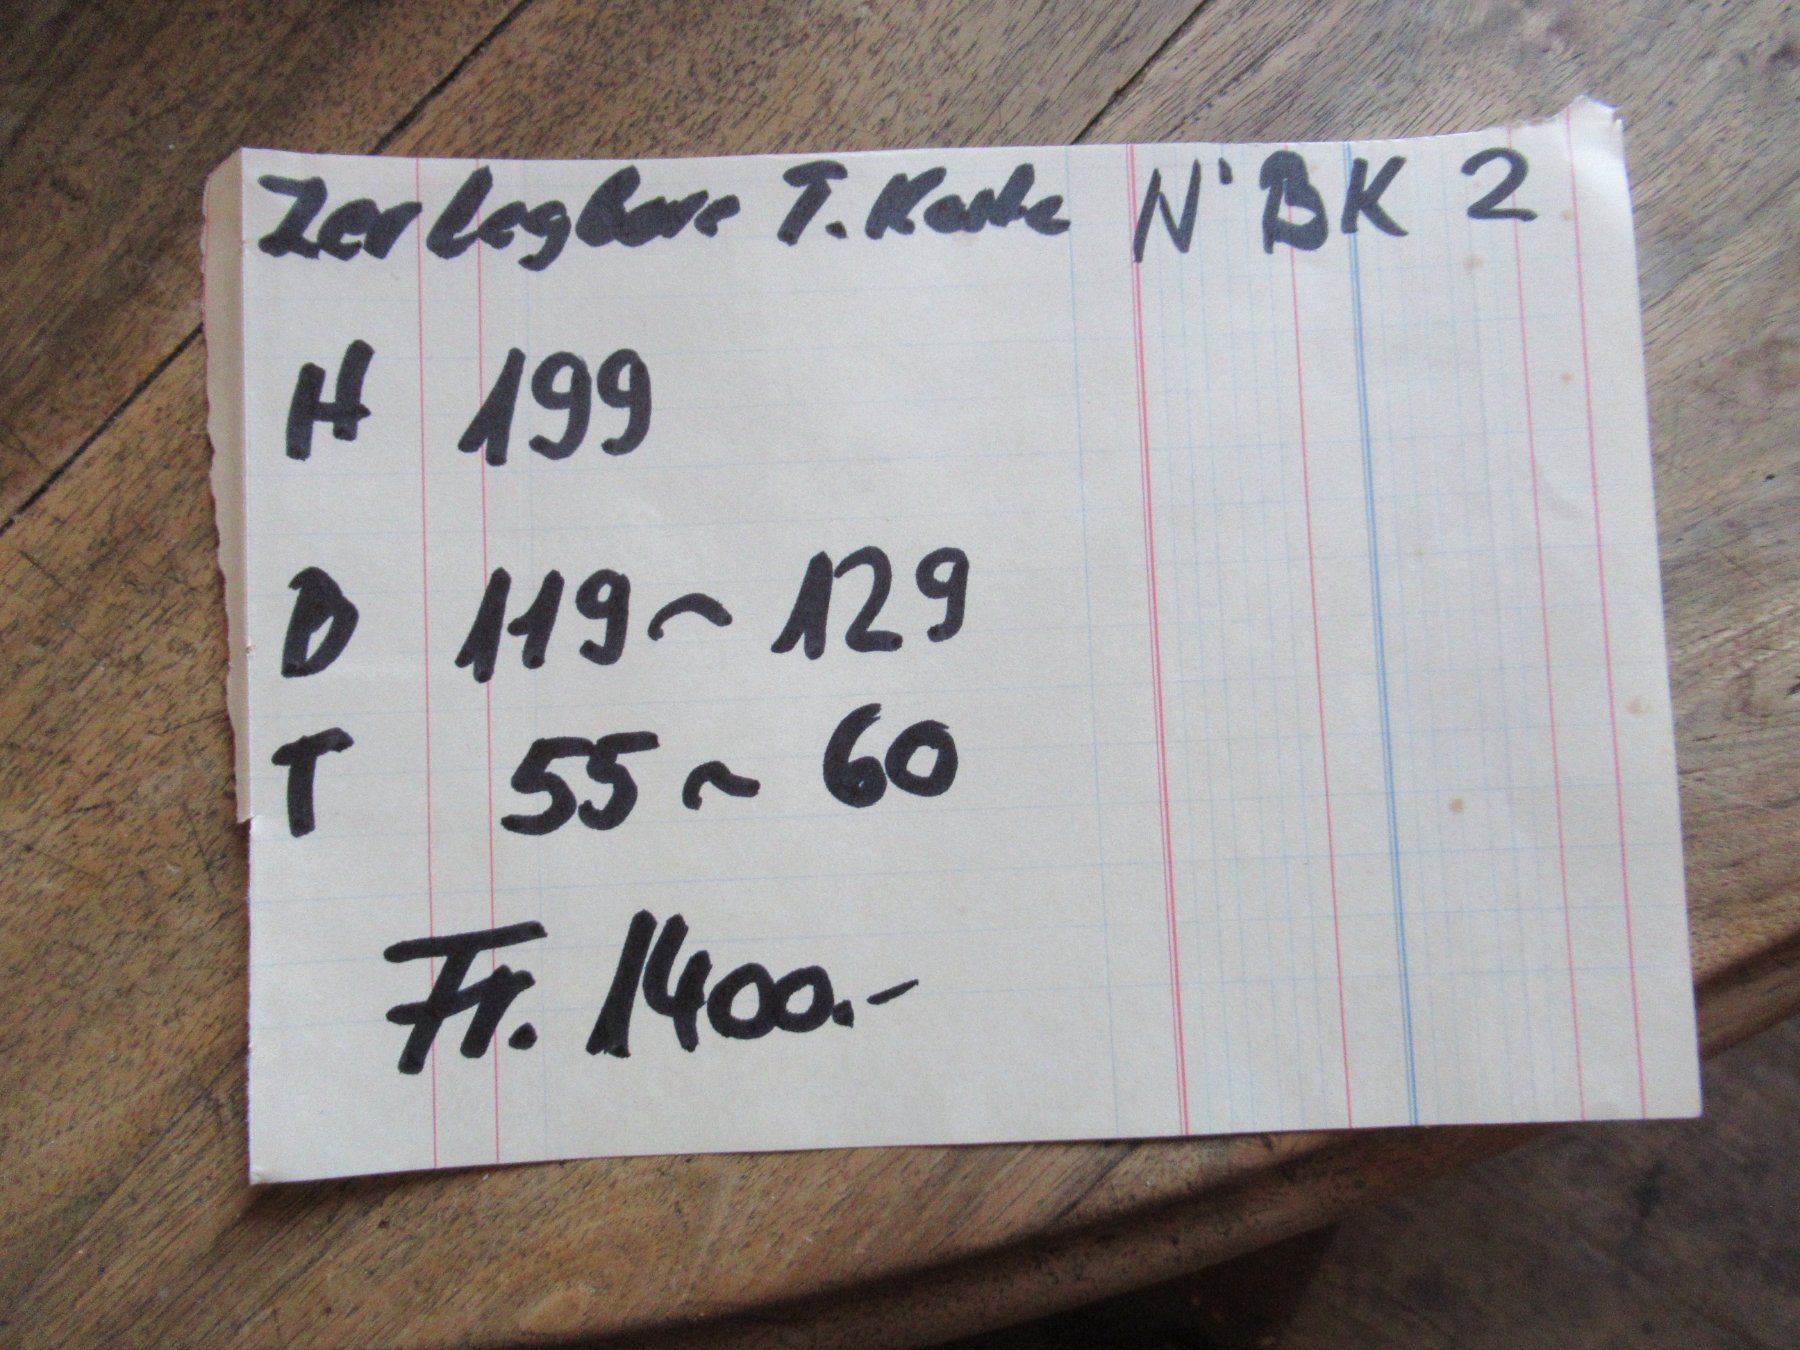 Zerlegbare T. Kaste N' BK 2
H 199
B 119 ~ 129
T 55 ~ 60
Fr. 1400.-